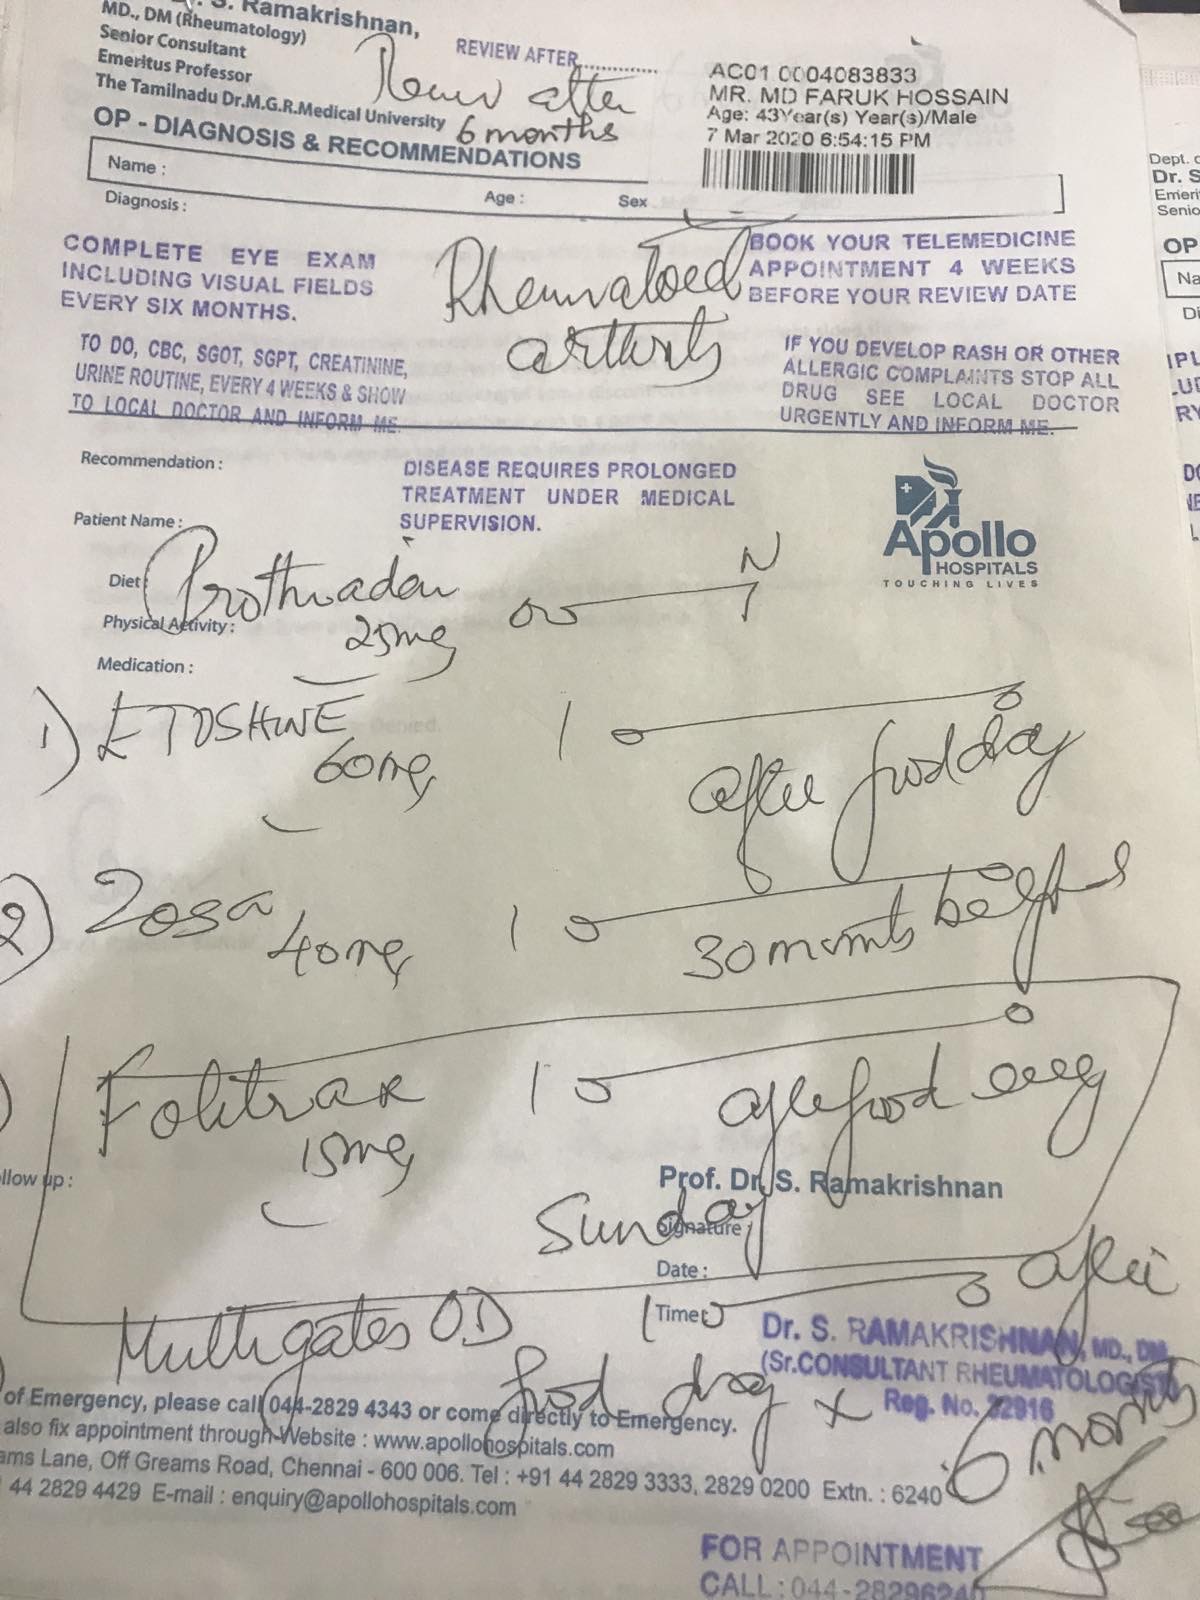 S. Ramakrishnan,
MD., DM (Rheumatology)
Senior Consultant
Emeritus Professor
The Tamilnadu Dr.M.G.R.Medical University
REVIEW AFTER..............
after
6 months
AC01.0004083833
MR. MD FARUK HOSSAIN
Age: 43Year(s) Year(s)/Male
7 Mar 2020 6:54:15 PM
OP - DIAGNOSIS & RECOMMENDATIONS
Name :
Age :
Sex
Diagnosis :
COMPLETE EYE EXAM
INCLUDING VISUAL FIELDS
EVERY SIX MONTHS.
Rheumatoid
arthritis
BOOK YOUR TELEMEDICINE
APPOINTMENT 4 WEEKS
BEFORE YOUR REVIEW DATE
TO DO, CBC, SGOT, SGPT, CREATININE,
URINE ROUTINE, EVERY 4 WEEKS & SHOW
TO LOCAL DOCTOR AND INFORM ME.
IF YOU DEVELOP RASH OR OTHER
ALLERGIC COMPLAINTS STOP ALL
DRUG SEE LOCAL DOCTOR
URGENTLY AND INFORM ME.
Recommendation :
DISEASE REQUIRES PROLONGED
TREATMENT UNDER MEDICAL
SUPERVISION.
Apollo
HOSPITALS
TOUCHING LIVES
Patient Name :
Diet :
Prothiaden
25mg
0 0 N 1
Physical Activity :
Medication :
1) ETOSHINE 1 0 0
60mg
after food day
2) Zosa 1 0 0
40mg
30 minuts before
Folitrax 1 0 0
15mg
after food every
Sunday
Follow up :
Prof. Dr. S. Ramakrishnan
Signature :
Date :
Time :
Multigates OD 1 0 0 after
food day x 6 months
Dr. S. RAMAKRISHNAN, MD., DM
(Sr.CONSULTANT RHEUMATOLOGIST)
Reg. No. 22916
of Emergency, please call 044-2829 4343 or come directly to Emergency.
also fix appointment through Website : www.apollohospitals.com
ams Lane, Off Greams Road, Chennai - 600 006. Tel : +91 44 2829 3333, 2829 0200 Extn. : 6240
44 2829 4429 E-mail : enquiry@apollohospitals.com
FOR APPOINTMENT
CALL : 044-28296240
Dept. o
Dr. S
Emeri
Senio
OP
Na
Di